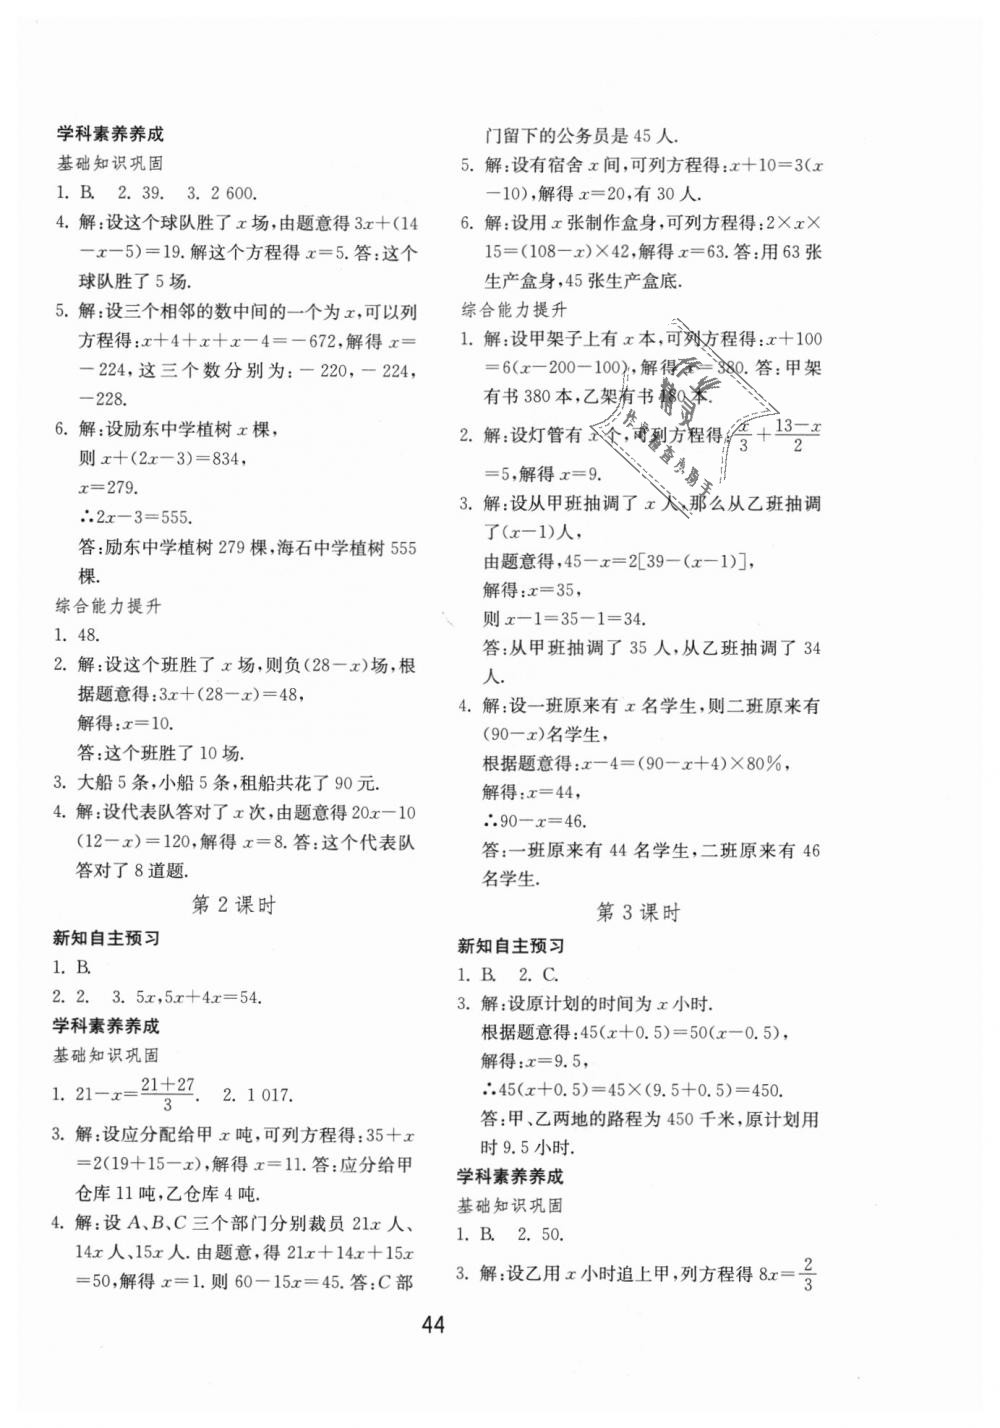 学科素养养成
基础知识巩固
1. B. 2. 39. 3. 2 600.
4. 解:设这个球队胜了 x 场,由题意得 3x+(14
－x－5)＝19. 解这个方程得 x＝5. 答:这个
球队胜了 5 场.
5. 解:设三个相邻的数中间的一个为 x,可以列
方程得:x＋4＋x＋x－4＝－672,解得 x＝
－224,这三个数分别为:－220,－224,
－228.
6. 解:设励东中学植树 x 棵,
则 x＋(2x－3)＝834,
x＝279.
∴2x－3＝555.
答:励东中学植树 279 棵,海石中学植树 555
棵.
综合能力提升
1. 48.
2. 解:设这个班胜了 x 场,则负(28－x)场,根
据题意得:3x＋(28－x)＝48,
解得:x＝10.
答:这个班胜了 10 场.
3. 大船 5 条,小船 5 条,租船共花了 90 元.
4. 解:设代表队答对了 x 次,由题意得 20x－10
(12－x)＝120,解得 x＝8. 答:这个代表队
答对了 8 道题.
第 2 课时
新知自主预习
1. B.
2. 2. 3. 5x,5x＋4x＝54.
学科素养养成
基础知识巩固
1. 21－x＝(21＋27)/3. 2. 1 017.
3. 解:设应分配给甲 x 吨,可列方程得:35＋x
＝2(19＋15－x),解得 x＝11. 答:应分给甲
仓库 11 吨,乙仓库 4 吨.
4. 解:设 A、B、C 三个部门分别裁员 21x 人、
14x 人、15x 人. 由题意,得 21x＋14x＋15x
＝50,解得 x＝1. 则 60－15x＝45. 答:C 部
门留下的公务员是 45 人.
5. 解:设有宿舍 x 间,可列方程得:x＋10＝3(x
－10),解得 x＝20,有 30 人.
6. 解:设用 x 张制作盒身,可列方程得:2×x×
15＝(108－x)×42,解得 x＝63. 答:用 63 张
生产盒身,45 张生产盒底.
综合能力提升
1. 解:设甲架子上有 x 本,可列方程得:x＋100
＝6(x－200－100),解得 x＝380. 答:甲架
有书 380 本,乙架有书 180 本.
2. 解:设灯管有 x 个,可列方程得:x/3＋(13－x)/2
＝5,解得 x＝9.
3. 解:设从甲班抽调了 x 人,那么从乙班抽调
了(x－1)人,
由题意得,45－x＝2[39－(x－1)],
解得:x＝35,
则 x－1＝35－1＝34.
答:从甲班抽调了 35 人,从乙班抽调了 34
人.
4. 解:设一班原来有 x 名学生,则二班原来有
(90－x)名学生,
根据题意得:x－4＝(90－x＋4)×80%,
解得:x＝44,
∴90－x＝46.
答:一班原来有 44 名学生,二班原来有 46
名学生.
第 3 课时
新知自主预习
1. B. 2. C.
3. 解:设原计划的时间为 x 小时.
根据题意得:45(x＋0.5)＝50(x－0.5),
解得:x＝9.5,
∴45(x＋0.5)＝45×(9.5＋0.5)＝450.
答:甲、乙两地的路程为 450 千米,原计划用
时 9.5 小时.
学科素养养成
基础知识巩固
1. B. 2. 50.
3. 解:设乙用 x 小时追上甲,列方程得 8x＝2/3
作业
精灵
作业检查小助手
44